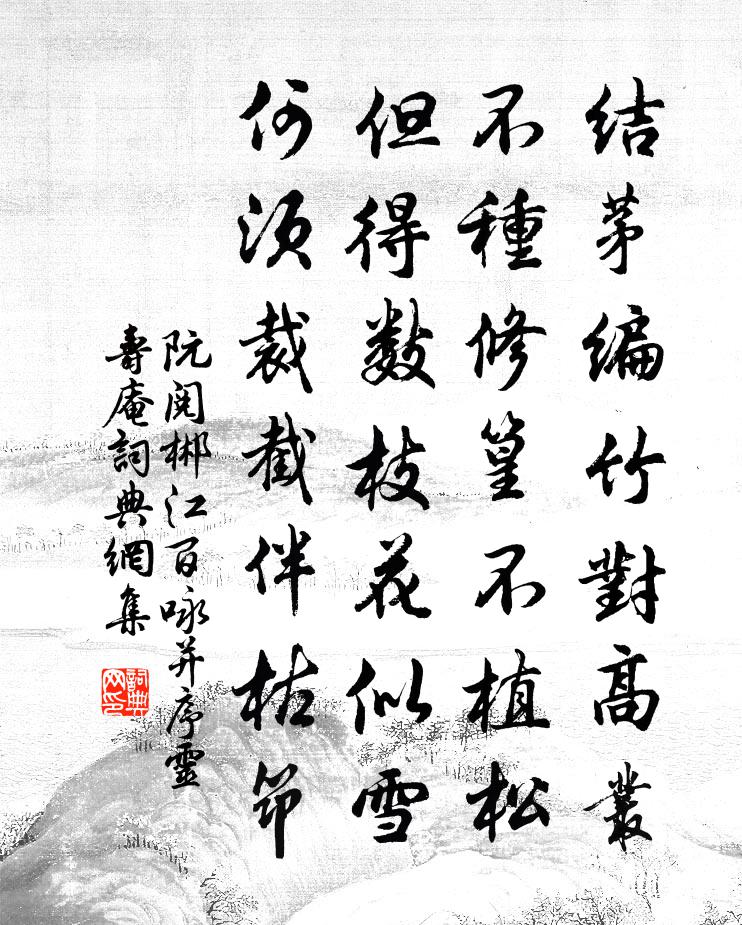 結茅編竹對高叢
不種修篁不植松
但得數枝花似雪
何須裁截伴枯笻
阮閱郴江百咏并序靈
壽庵詞典網集
詞典
网印